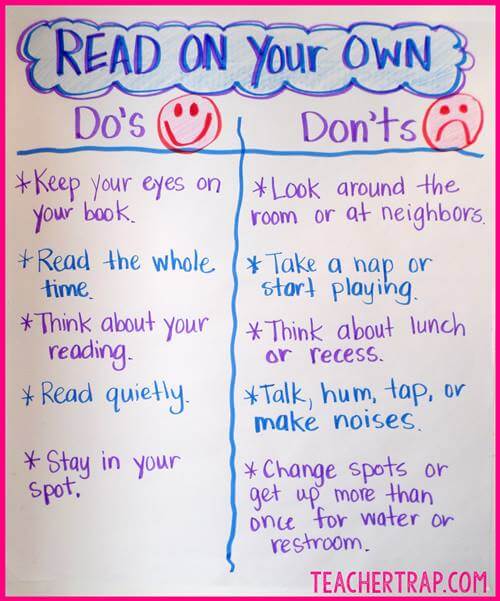 READ ON Your OWN
Do's
Don'ts
*Keep your eyes on
your book.
*Read the whole
time.
*Think about your
reading.
*Read quietly.
*Stay in your
spot.
*Look around the
room or at neighbors.
*Take a nap or
start playing.
*Think about lunch
or recess.
*Talk, hum, tap, or
make noises.
*Change spots or
get up more than
once for water or
restroom.
TEACHERTRAP.COM